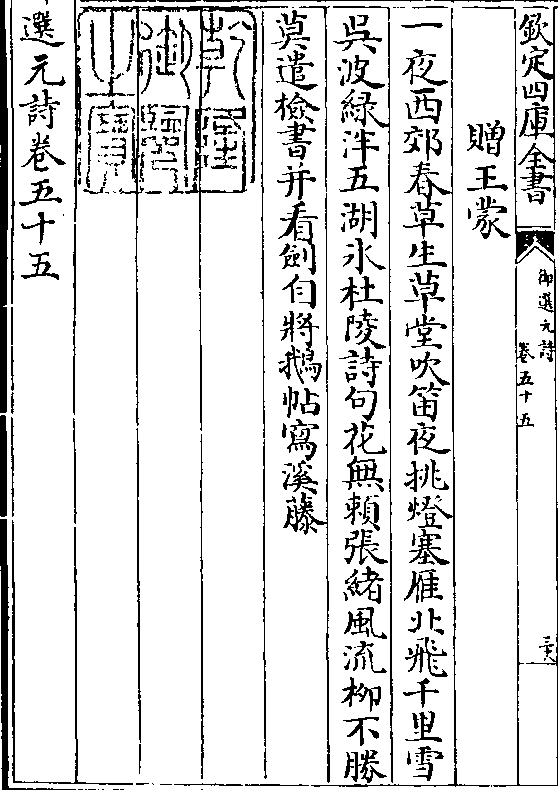 欽定四庫全書
御選元詩
卷五十五
贈王蒙
一夜西郊春草生草堂吹笛夜挑燈塞雁北飛千里雪
吳波綠泮五湖氷杜陵詩句花無賴張緒風流栁不勝
莫遣檢書并看劍自將鵝帖寫溪藤
乾隆
御覽
之寶
選元詩卷五十五